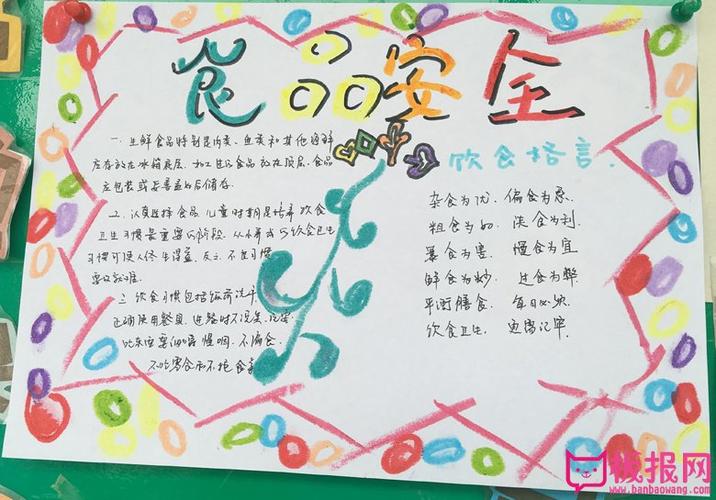 食品安全
一、生鲜食品特别是肉类、鱼类和其他海鲜
应存放在冰箱底层,加工过的食品放在顶层,食品
应包装或是覆盖好后储存.
二、认真选择食品 儿童时期是培养饮食
卫生习惯最重要的阶段 从小养成的饮食卫生
习惯可使人终生得益,反之,不良习惯
要改就难.
三、饮食习惯包括饭前洗手
正确使用餐具,进餐时不误吴
吃东西要细嚼慢咽,不偏食,
不吃零食和不挑食等
饮食格言.
杂食为优,偏食为忌.
粗食为好,淡食为利
暴食为害,慢食为宜
鲜食为妙,过食为弊
平衡膳食,每日必须
饮食卫生,更需记牢
板报网
www.banbaowang.com